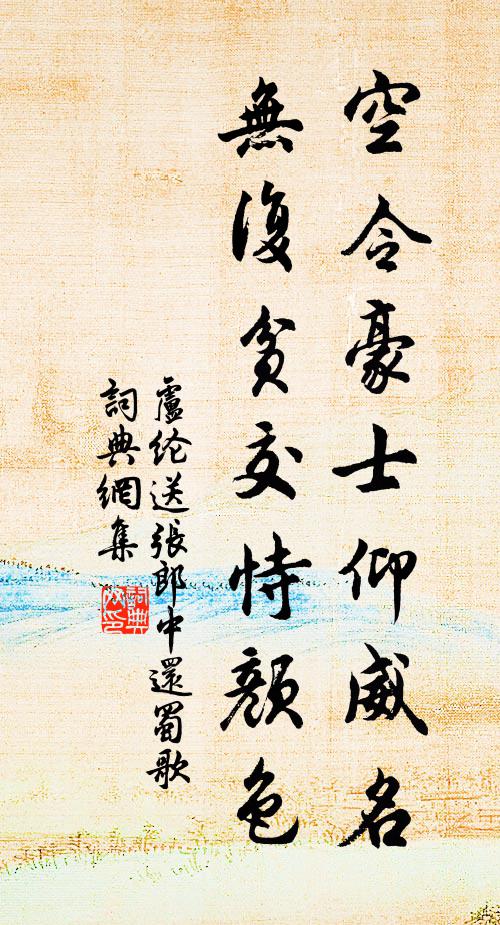 空令豪士仰威名
無復貧交恃顏色
盧纶送張郎中還蜀歌
詞典網集